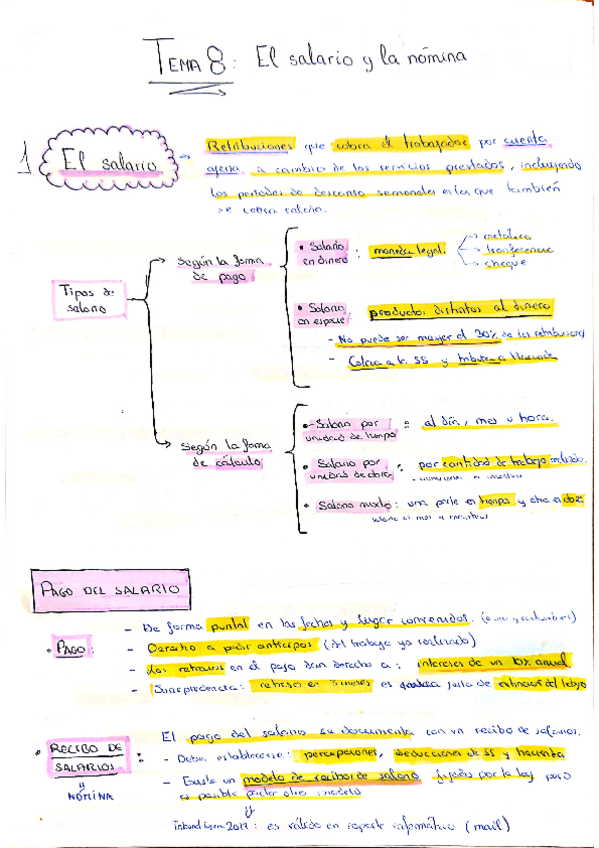 TEMA 8: El salario y la nómina
1 El salario → Retribuciones que cobra el trabajador por cuenta
ajena a cambio de los servicios prestados, incluyendo
los periodos de descanso semanales en los que también
se cobra salario.
Tipos de
salario
según la forma
de pago
• Salario
en dinero : moneda legal.
metálico
transferencia
cheque
• Salario
en especie : productos distintos al dinero
- No puede ser mayor el 30% de las retribuciones
- Cotiza a la SS y tributa a Hacienda
según la forma
de cálculo
• Salario por
unidad de tiempo : al día, mes u hora.
• Salario por
unidad de obra : por cantidad de trabajo realizado.
• Salario mixto : una parte en tiempo y otra en obra
PAGO DEL SALARIO
• PAGO :
- De forma puntual en las fechas y lugar convenidos.
- Derecho a pedir anticipos (del trabajo ya realizado)
- Los retrasos en el pago dan derecho a : intereses de un 10% anual.
- Jurisprudencia : retraso en 3 meses es justa de extinción del
• RECIBO DE
SALARIOS :
=
NÓMINA
El pago del salario se documenta con un recibo de salarios.
- Debe establecerse : percepciones, deducciones de SS y hacienda
- Existe un modelo de recibo de salario, fijado por la ley pero
es posible pactar otro modelo
2017 : es válido en soporte informático (mail)